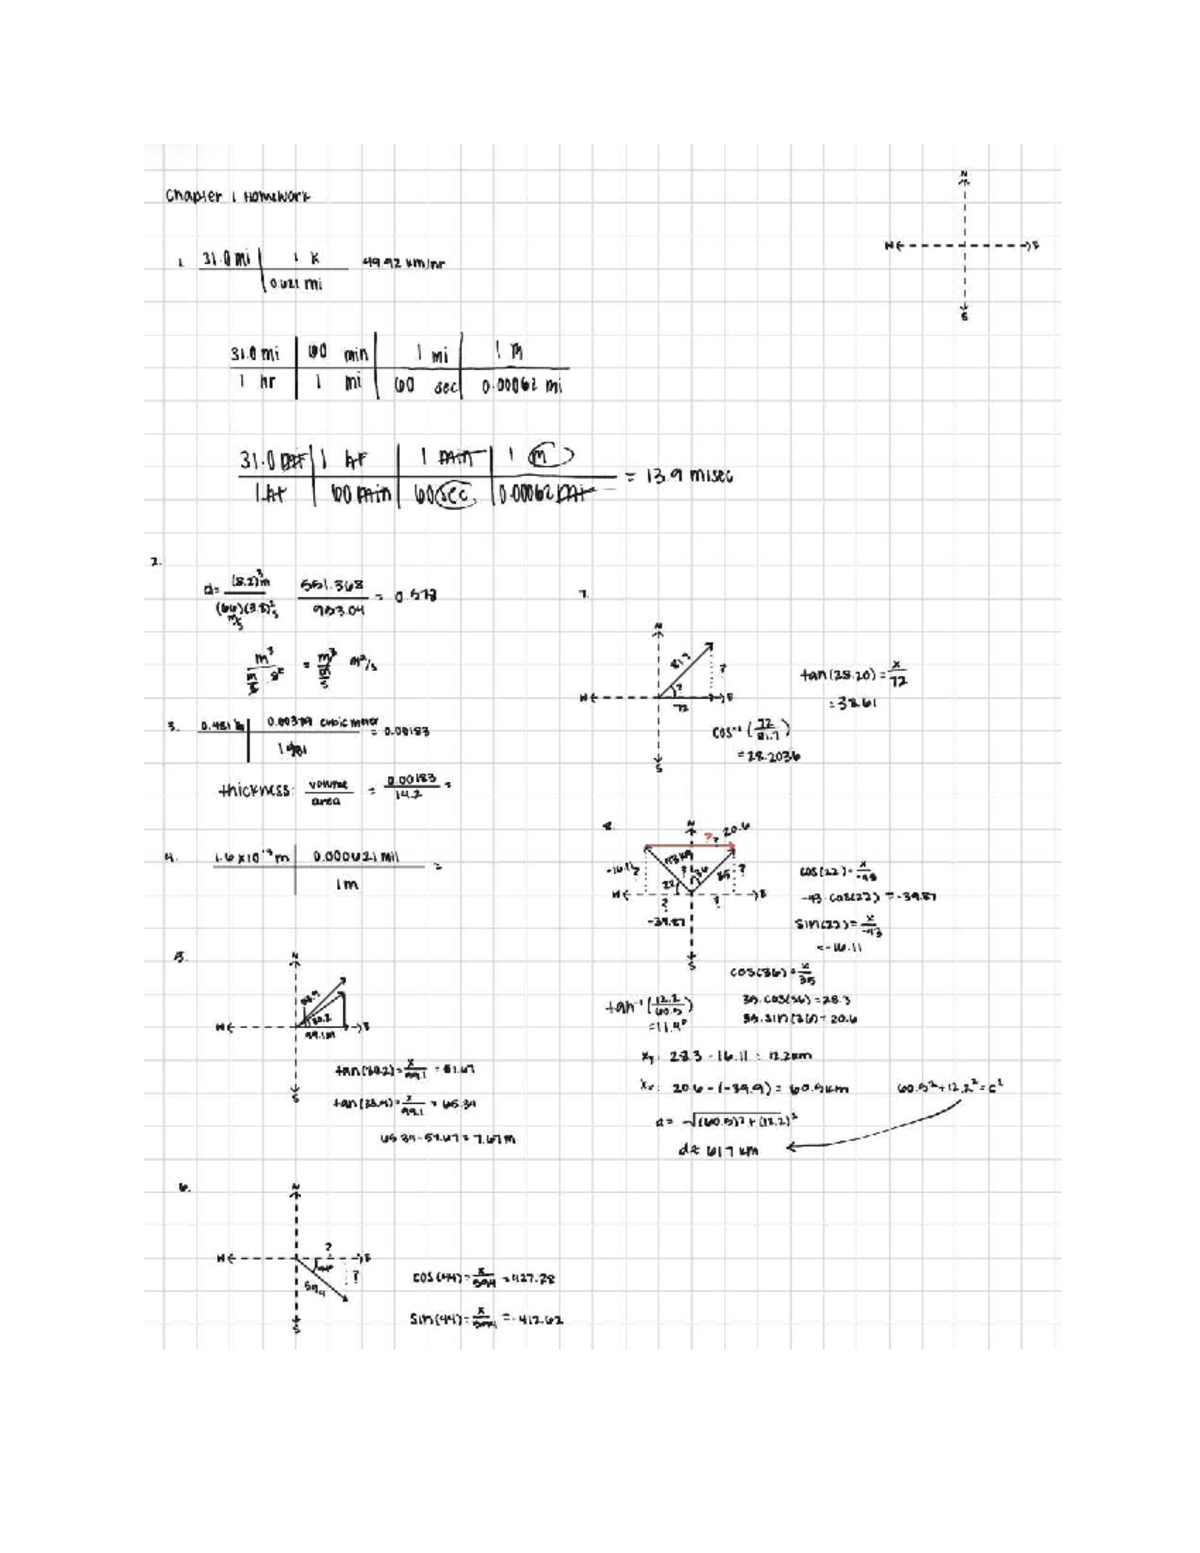 N
Chapter 1 Homework
W E
S
1. 31.0 mi | 1 K 49.92 km/hr
0.621 mi
31.0 mi | 60 min | 1 mi | 1 m
1 hr | 1 mi | 60 sec | 0.00062 mi
31.0 mi | 1 hr | 1 min | 1 m
1 hr | 60 min | 60 sec | 0.00062 mi = 13.9 m/sec
2.
d= (8.2)³m 551.368 = 0.578
(66)(3.8)²s 953.04
m/s
m³ = m³ m²/s
3. 0.00379 cubic meter = 0.00183
1 gal
thickness: volume = 0.00183 =
area 14.2
4. m | 0.000621 mil =
1m
5.
N
W E
S
39.1m
tan(30.2)= x/99.1 =
tan(33.4)= x/99.1 = 65.34
= 7.67m
6.
N
W E
S
?
44°
?
594
cos(44)= x/594 = 427.28
sin(44)= x/594 = -412.62
7.
N
W E
S
81.7
?
?
72
tan(28.20)= x/72
= 38.61
cos⁻¹(72/81.7)
= 28.2036
8.
N
W E
S
? 20.6
-16.11
22
35
?
?
?
-39.87
cos(22)= x/-43
-43·cos(22) = -39.87
sin(22)= x/-43
= -16.11
cos(36)= x/35
35·cos(36)=28.3
35·sin(36)=20.6
tan⁻¹(12.2/60.5)
=11.4°
xy: 28.3 - 16.11 = 12.2km
xx: 20.6-(-39.9) = 60.5km 60.5²+12.2²=c²
d= √(60.5)²+(12.2)²
d= 61.7 km